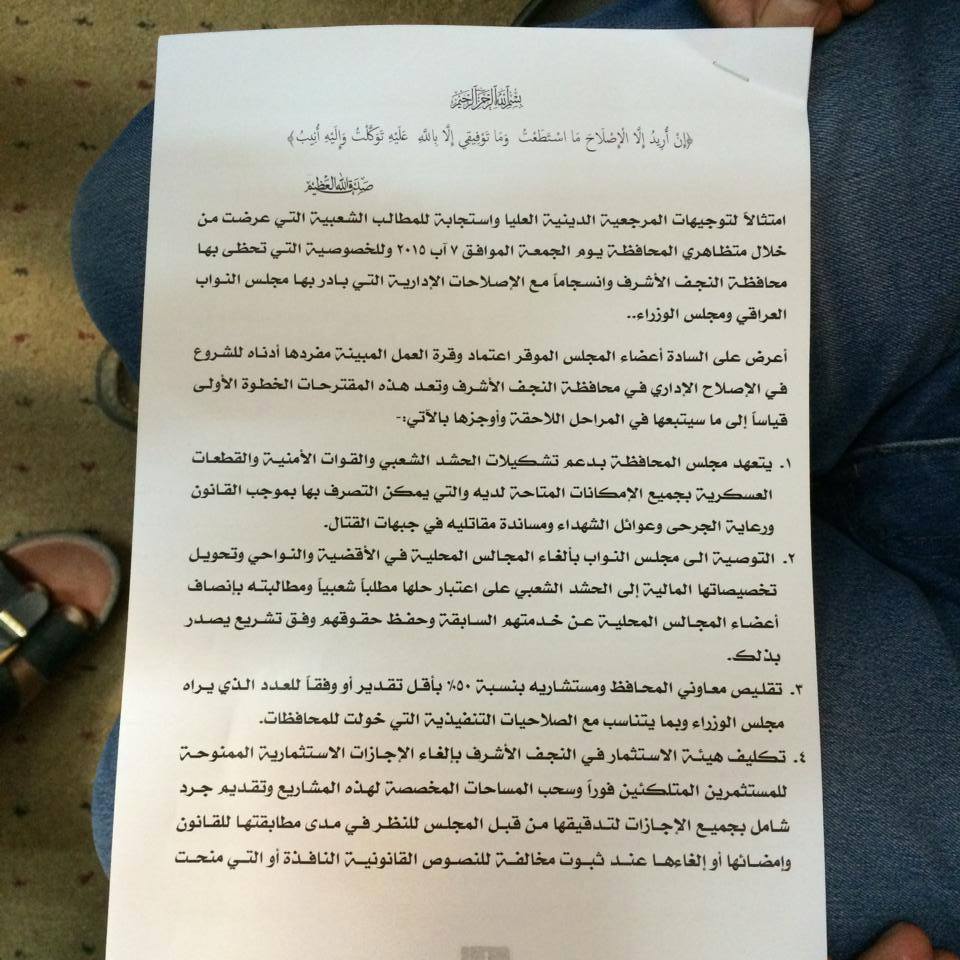 بسم الله الرحمن الرحيم
﴿إِنْ أُرِيدُ إِلَّا الْإِصْلَاحَ مَا اسْتَطَعْتُ وَمَا تَوْفِيقِي إِلَّا بِاللَّهِ عَلَيْهِ تَوَكَّلْتُ وَإِلَيْهِ أُنِيبُ﴾
صدق الله العظيم
امتثالاً لتوجيهات المرجعية الدينية العليا واستجابة للمطالب الشعبية التي عرضت من
خلال متظاهري المحافظة يوم الجمعة الموافق ٧ آب ٢٠١٥ وللخصوصية التي تحظى بها
محافظة النجف الأشرف وانسجاماً مع الإصلاحات الإدارية التي بادر بها مجلس النواب
العراقي ومجلس الوزراء..
أعرض على السادة أعضاء المجلس الموقر اعتماد وقرة العمل المبينة مفردها أدناه للشروع
في الإصلاح الإداري في محافظة النجف الأشرف وتعد هذه المقترحات الخطوة الأولى
قياساً إلى ما سيتبعها في المراحل اللاحقة وأوجزها بالآتي:-
١. يتعهد مجلس المحافظة بدعم تشكيلات الحشد الشعبي والقوات الأمنية والقطعات
العسكرية بجميع الإمكانات المتاحة لديه والتي يمكن التصرف بها بموجب القانون
ورعاية الجرحى وعوائل الشهداء ومساندة مقاتليه في جبهات القتال.
٢. التوصية الى مجلس النواب بألغاء المجالس المحلية في الأقضية والنواحي وتحويل
تخصيصاتها المالية إلى الحشد الشعبي على اعتبار حلها مطلباً شعبياً ومطالبته بإنصاف
أعضاء المجالس المحلية عن خدمتهم السابقة وحفظ حقوقهم وفق تشريع يصدر
بذلك.
٣. تقليص معاوني المحافظ ومستشاريه بنسبة ٥٠٪ بأقل تقدير أو وفقاً للعدد الذي يراه
مجلس الوزراء وبما يتناسب مع الصلاحيات التنفيذية التي خولت للمحافظات.
٤. تكليف هيئة الاستثمار في النجف الأشرف بإلغاء الإجازات الاستثمارية الممنوحة
للمستثمرين المتلكئين فوراً وسحب المساحات المخصصة لهذه المشاريع وتقديم جرد
شامل بجميع الإجازات لتدقيقها من قبل المجلس للنظر في مدى مطابقتها للقانون
وإمضائها أو إلغاءها عند ثبوت مخالفة للنصوص القانونية النافذة أو التي منحت